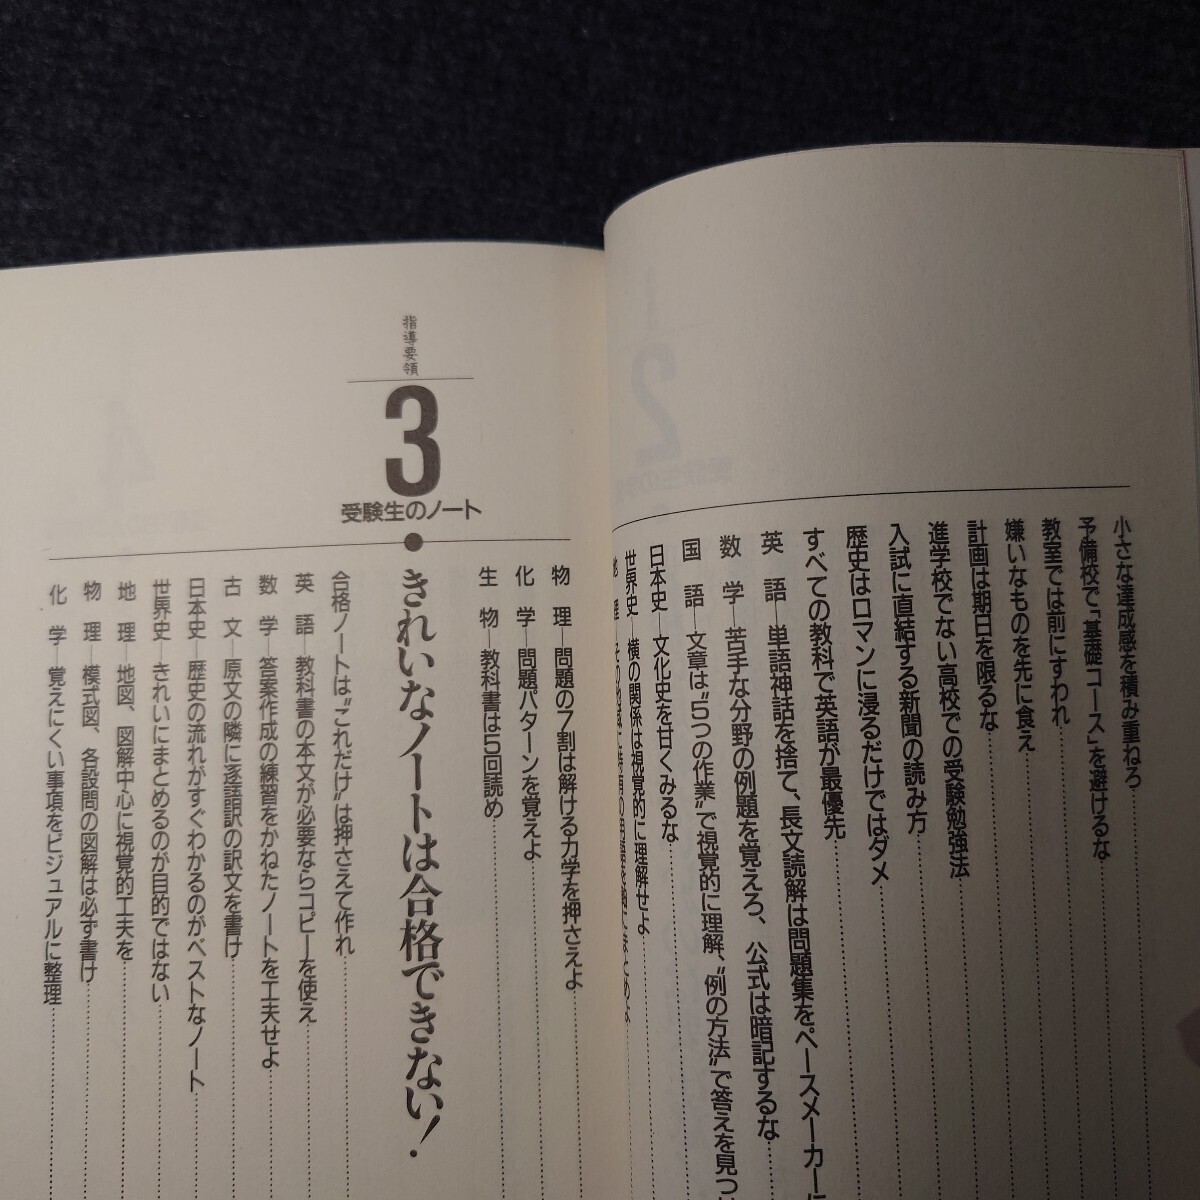 小さな達成感を積み重ねろ
予備校で「基礎コース」を避けるな
教室では前にすわれ
嫌いなものを先に食え
計画は期日を限るな
進学校でない高校での受験勉強法
入試に直結する新聞の読み方
歴史はロマンに浸るだけではダメ
すべての教科で英語が最優先
英語―単語神話を捨て、長文読解は問題集をペースメーカーに
数学―苦手な分野の例題を覚えろ、公式は暗記するな
国語―文章は"5つの作業"で視覚的に理解、"例の方法"で答えを見つ
日本史―文化史を甘くみるな
世界史―横の関係は視覚的に理解せよ
地理―その地域に
物理―問題の7割は解ける力学を押さえよ
化学―問題パターンを覚えよ
生物―教科書は5回読め
指導要領
3
受験生のノート
●きれいなノートは合格できない!
合格ノートは"これだけ"は押さえて作れ
英語―教科書の本文が必要ならコピーを使え
数学―答案作成の練習をかねたノートを工夫せよ
古文―原文の隣に逐語訳の訳文を書け
日本史―歴史の流れがすぐわかるのがベストなノート
世界史―きれいにまとめるのが目的ではない
地理―地図、図解中心に視覚的工夫を
物理―模式図、各設問の図解は必ず書け
化学―覚えにくい事項をビジュアルに整理